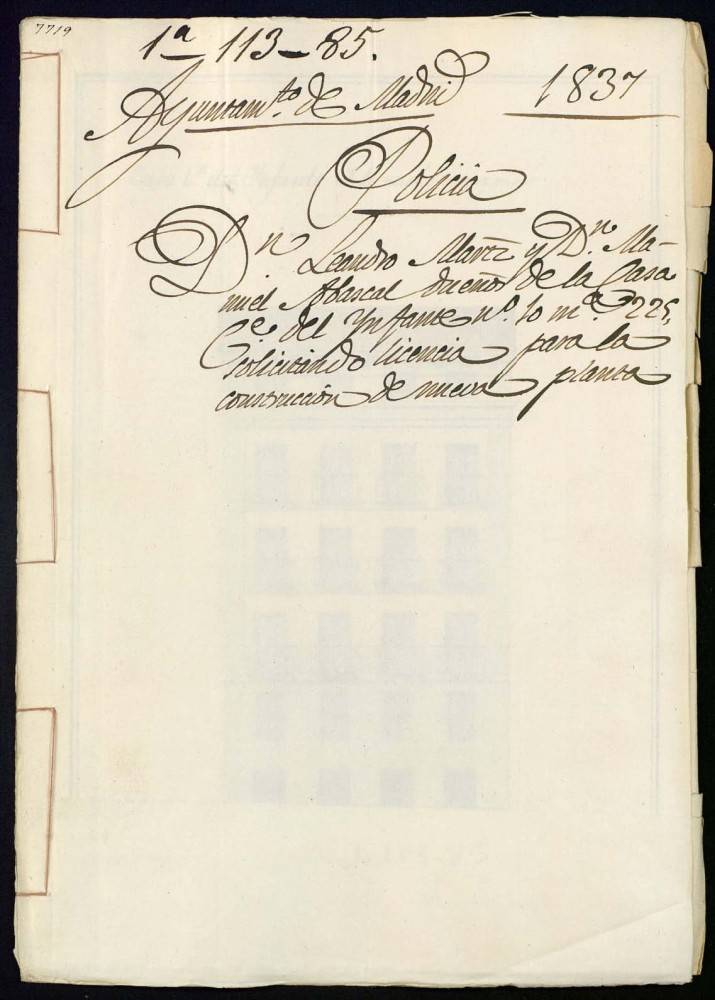 7719
1ª 113-85.
Ayuntamto de Madrid 1837
Policía
Dn Leandro Martz y Dn. Ma-
nuel Abascal dueños de la Casa
Ce del Ynfante no. 10 ma. 225,
solicitando licencia para la
construcción de nueva planta